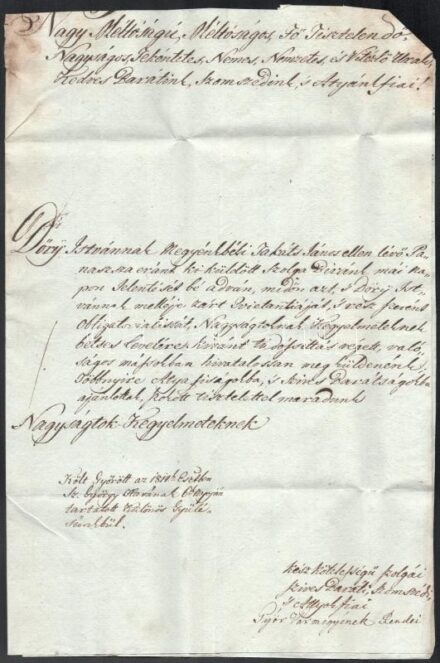 Nagy Méltóságú, Méltóságos, Fő Tisztelendő,
Nagyságos, Tekéntetes, Nemes, Nemzetes, és Vitézlő Urak,
Kedves Barátink, Szomszédink, 's Atyánkfiai!
Dőry Istvánnak Megyénkbéli Takáts János ellen lévő Pa-
naszsza eránt ki küldött Szolga Biránk mai na-
pon Jelentését bé adván, midőn azt, 's Dőry Ist-
vánnak mellyje zárt Quietantiáját 's vész szerént
Obligatorialissát, Nagyságtoknak Kegyelmeteknek
bétses Levelére kivánt tudósittás végett, való-
ságos mássokban hivatalossan meg küldenénk,
Többnyire Atyafiságokba, 's Szives Barátságokba
ajánlottak, tisztelettel maradunk
Nagyságtok Kegyelmeteknek
Költ Győrött az 1810k Eszten.
Sz. György Havának 6k Napján
tartatott Különös Gyülé-
sünkbül.
kész kötelességű szolgái
szives Baráti, Szomszédi,
's Attyafiai
Győr Vármegyének Rendei